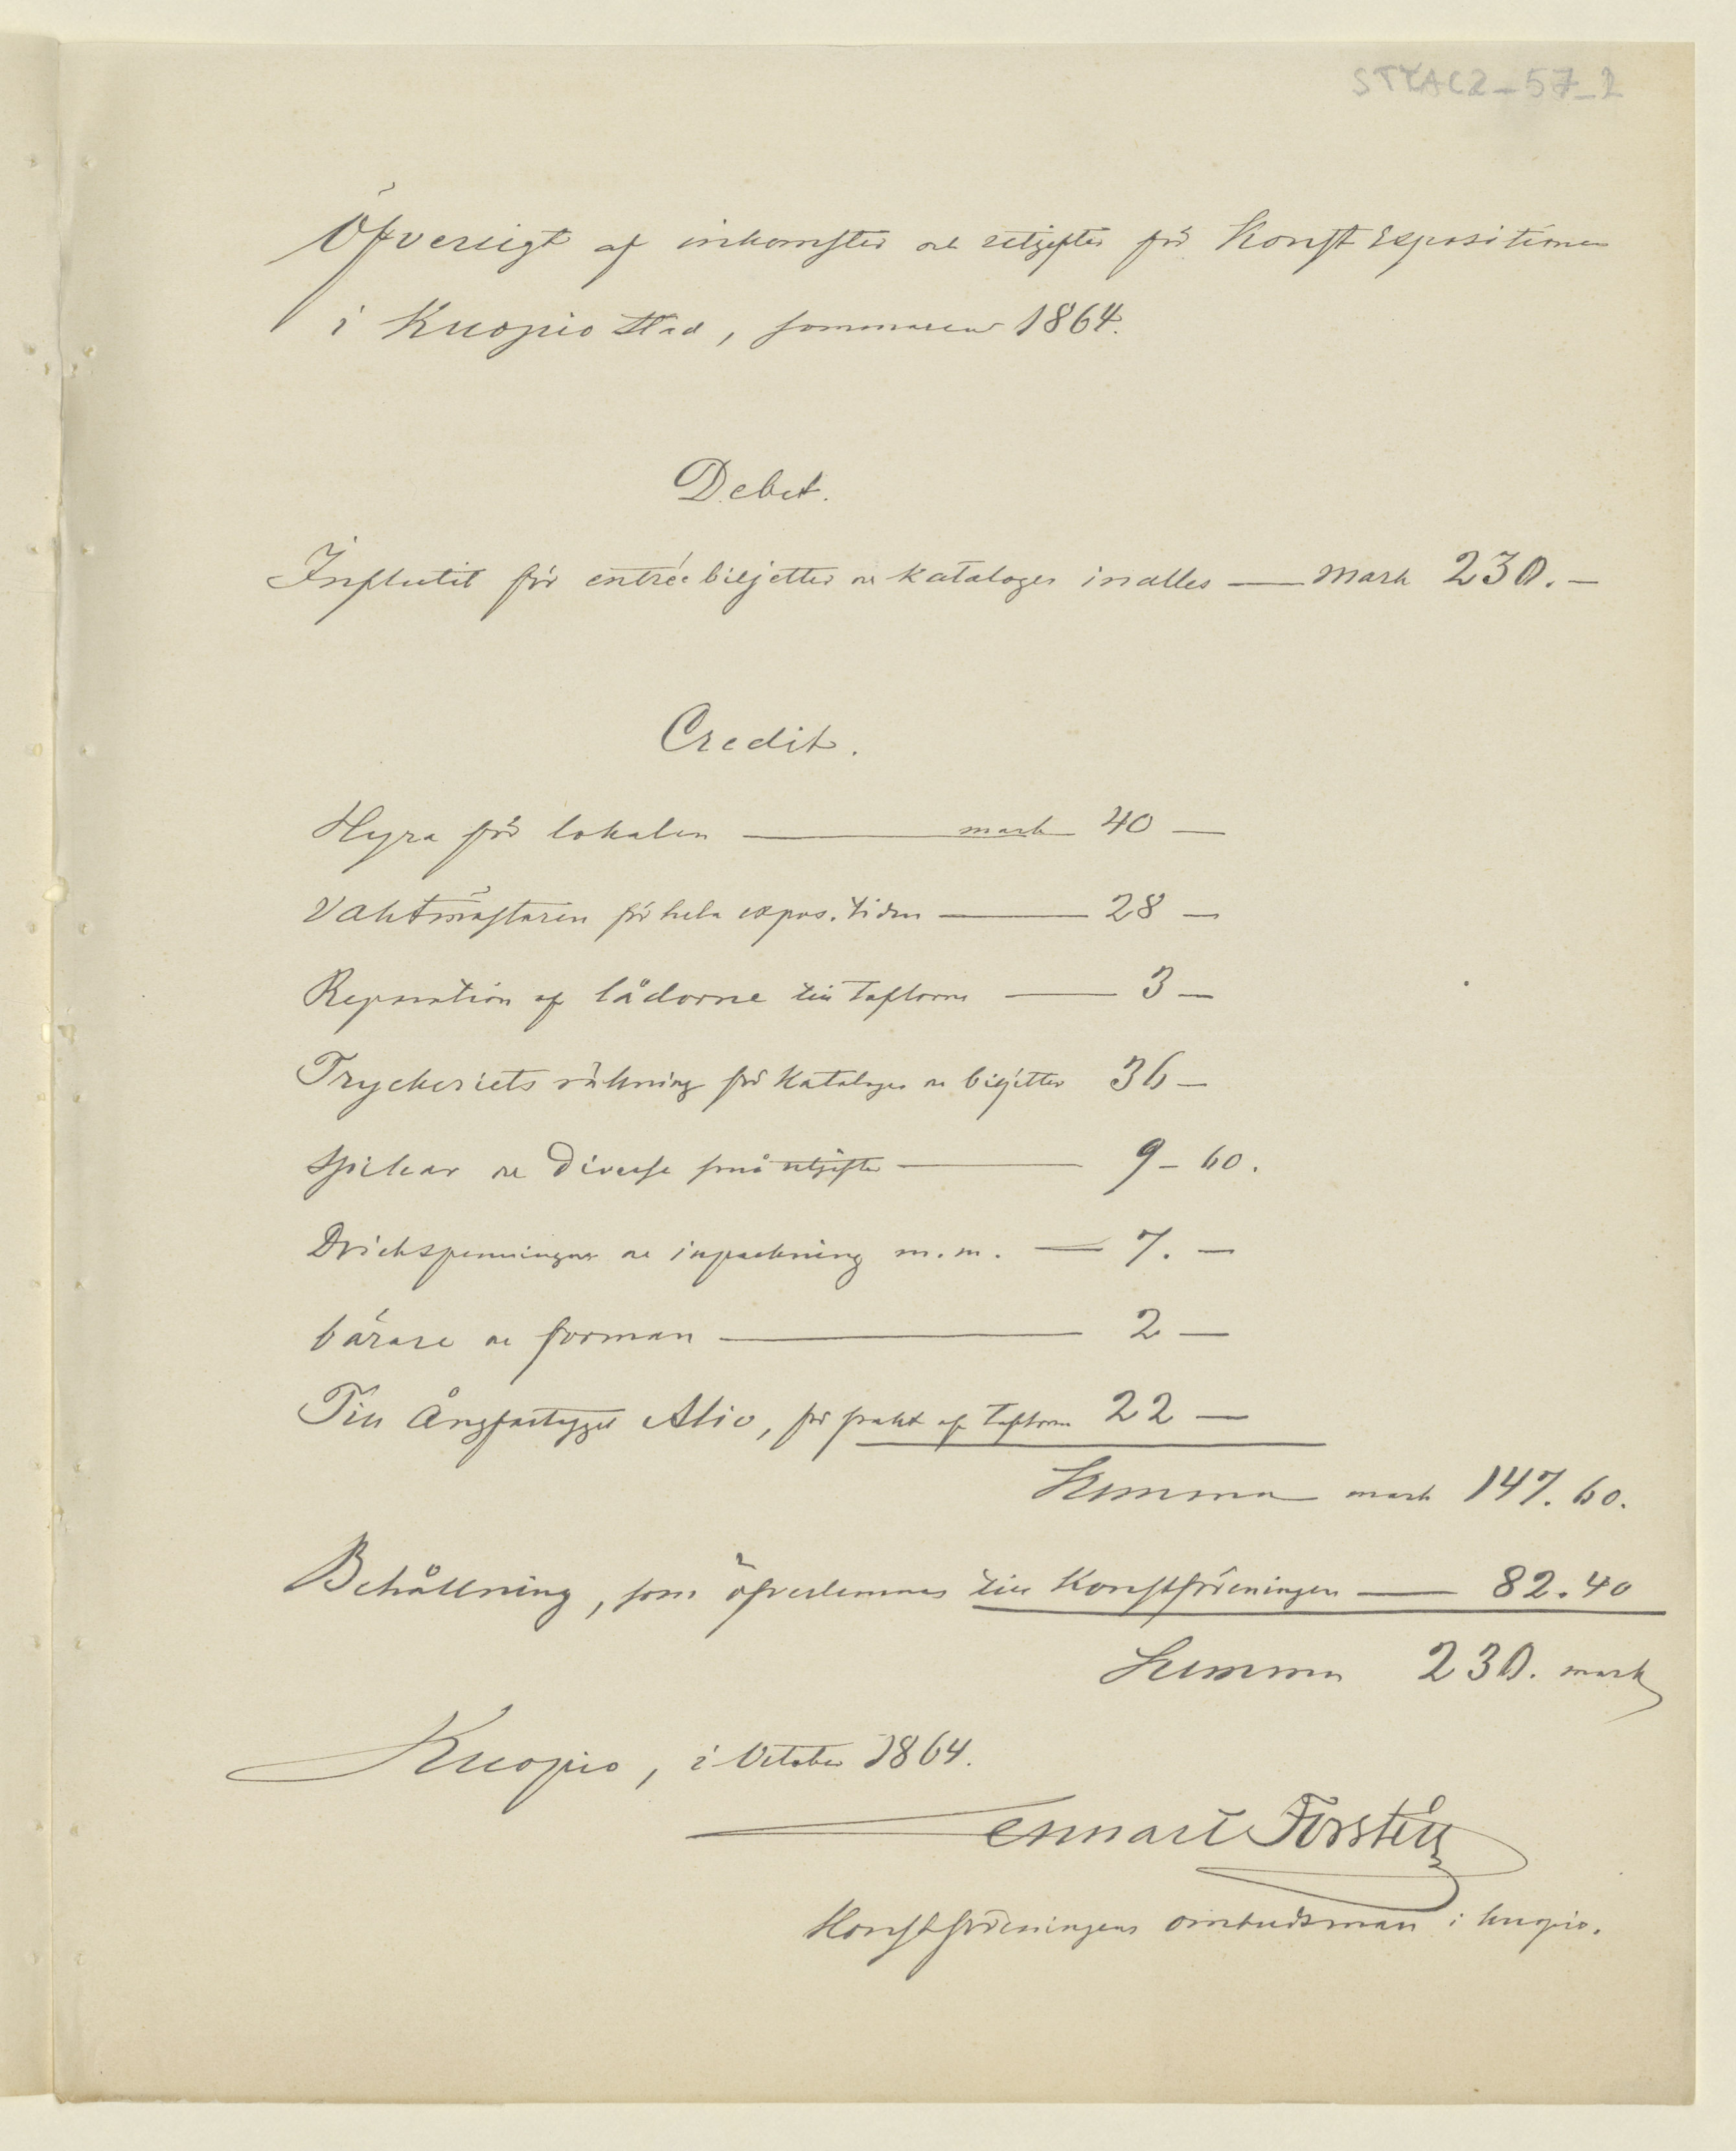 STYAC2_57_2
Öfversigt af inkomster och utgifter för Konst Expositionen
i Kuopio stad, sommaren 1864.
Debet.
Influtit för entrée biljetter och kataloger inalles — mark 230. —
Credit.
Hyra för lokalen — mark 40 —
Vaktmästaren för hela expos. tiden — 28 —
Reparation af lådorne till taflorna — 3 —
Tryckeriets räkning för kataloger och biljetter 36 —
Spikar och diverse små utgifter — 9 — 60.
Drickspenningar och inpackning m. m. — 7. —
bärare och forman — 2 —
Till Ångfartyget Ahio, för frakt af taflorna 22 —
Summa mark 147. 60.
Behållning, som öfverlemnas till Konstföreningen — 82. 40
Summa 230. mark
Kuopio, i October 1864.
Lennart Forstén
Konstföreningens ombudsman i Kuopio.